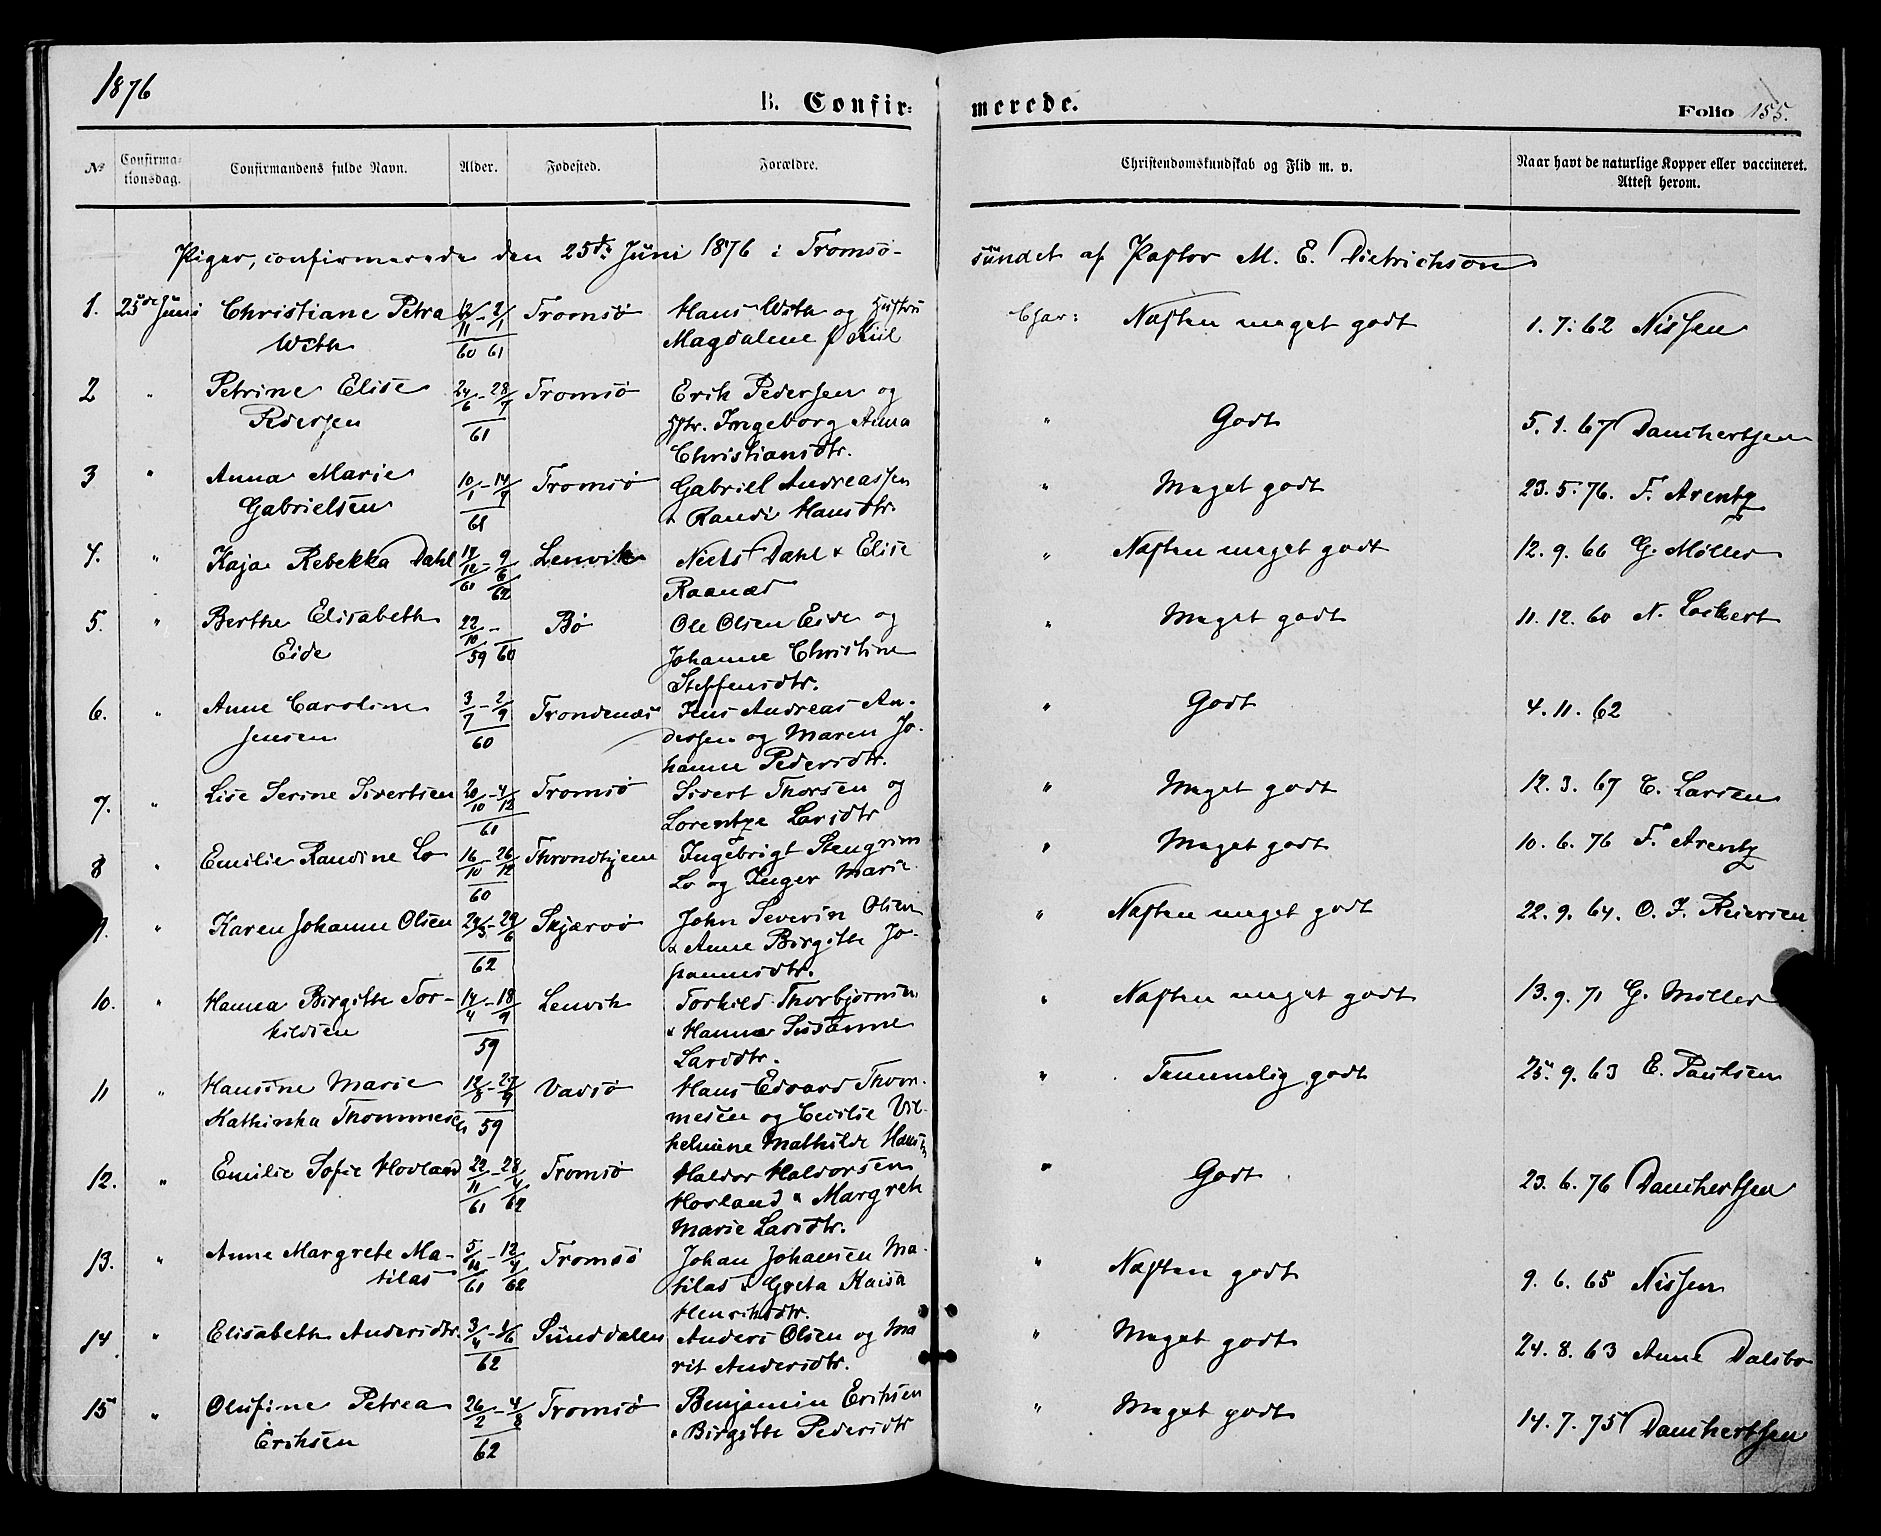 1876
B. Confir=
merede.
Folio 155.
№ Confirma-tionsdag. Confirmandens fulde Navn. Alder. Fødested. Forældre. Christendomskundskab og Flid m. v. Naar havt de naturlige Kopper eller vaccineret. Attest herom.
Piger, confirmerede den 25de Juni 1876 i Tromsö-
sundet af Pastor M. E. Dietrichson
1. 25de Juni Christiane Petra 12/11 - 2/1 Tromsö Hans With og Hustru Char: Næsten meget godt 1. 7. 62 Nissen
With 60 61 Magdalene
2 " Petrine Elise 24/6 - 28/7 Tromsö Erik Pedersen og
Pedersen 61 Hstr. Ingeborg Anna " Godt 5. 1. 67 Danchertsen
Christiansdtr.
3 " Anna Marie 10/1 - 14/9 Tromsö Gabriel Andreassen " Meget godt 23. 5. 76. F. Arentz
Gabrielsen 61 & Randi Hansdtr.
4. " Kaja Rebekka Dahl 17/12 - 9/6 Lenvik Niels Dahl & Elise " Næsten meget godt 12. 9. 66 G. Møller
61 62 Raanæs
5. " Berthe Elisabeth 22/10 - Bø Ole Olsen Eide og " Meget godt 11. 12. 60 N. Lockert
Eide 59 60 Johanne Christine
Steffensdtr.
6. " Anne Caroline 3/7 - 2/9 Trondenæs Jens Andreas An- " Godt 4. 11. 62
Jensen 60 dersen og Maren Jo-
hanne Pedersdtr.
7. " Lise Serine Sivertsen 20/10 - 4/12 Tromsö Sivert Thorsen og " Meget godt 12. 3. 67 C. Larsen
61 Lorentze Larsdtr
8 " Emilie Randine Lo 16/10 - 26/12 Throndhjem Ingebrigt Stengrim " Meget godt 10. 6. 76 F. Arentz
60 Lo og Inger Marie
9. " Karen Johanne Olsen 24/5 - 29/6 Skjærvö John Severin Olsen " Næsten meget godt 22. 9. 64. O. J. Reiersen
62 & Anne Birgitte Jo-
hannesdtr.
10. " Hanna Birgitte Tor- 14/4 - 18/9 Lenvik Torkild Thorbjörnsen " Næsten meget godt 13. 9. 71 G. Möller
kildsen 59 & Hanna Susanne
Larsdtr.
11 " Hansine Marie 12/8 - 27/9 Vadsö Hans Edvard Thom- " Temmelig godt 25. 9. 63 E. Paulsen
Kathinka Thommesen 59 mesen og Cecilie Vil-
helmine Mathilde Hansen
12. " Emilie Sofie Hovland 22/11 - 28/4 Tromsö Haldor Haldorsen " Godt 23. 6. 76 Danchertsen
61 62 Hovland & Margrete
Marie Larsdtr.
13. " Anne Margrete Ma- 5/11 - 12/4 Tromsö Johan Johansen Ma- " Næsten godt 9. 6. 65 Nissen
tilas 61 62 tilas & Greta Kaisa
Henriksdtr.
14 " Elisabeth Andersdtr. 3/4 - 1/6 Sunddalen Anders Olsen og Ma " Meget godt 24. 8. 63 Anne Dalsbo
62 rit Andersdtr.
15 " Olufine Petrea 26/2 - 4/8 Tromsö Benjamin Eriksen " Meget godt 14. 7. 75 Danchertsen
Eriksen 62 & Birgitte Pedersdtr